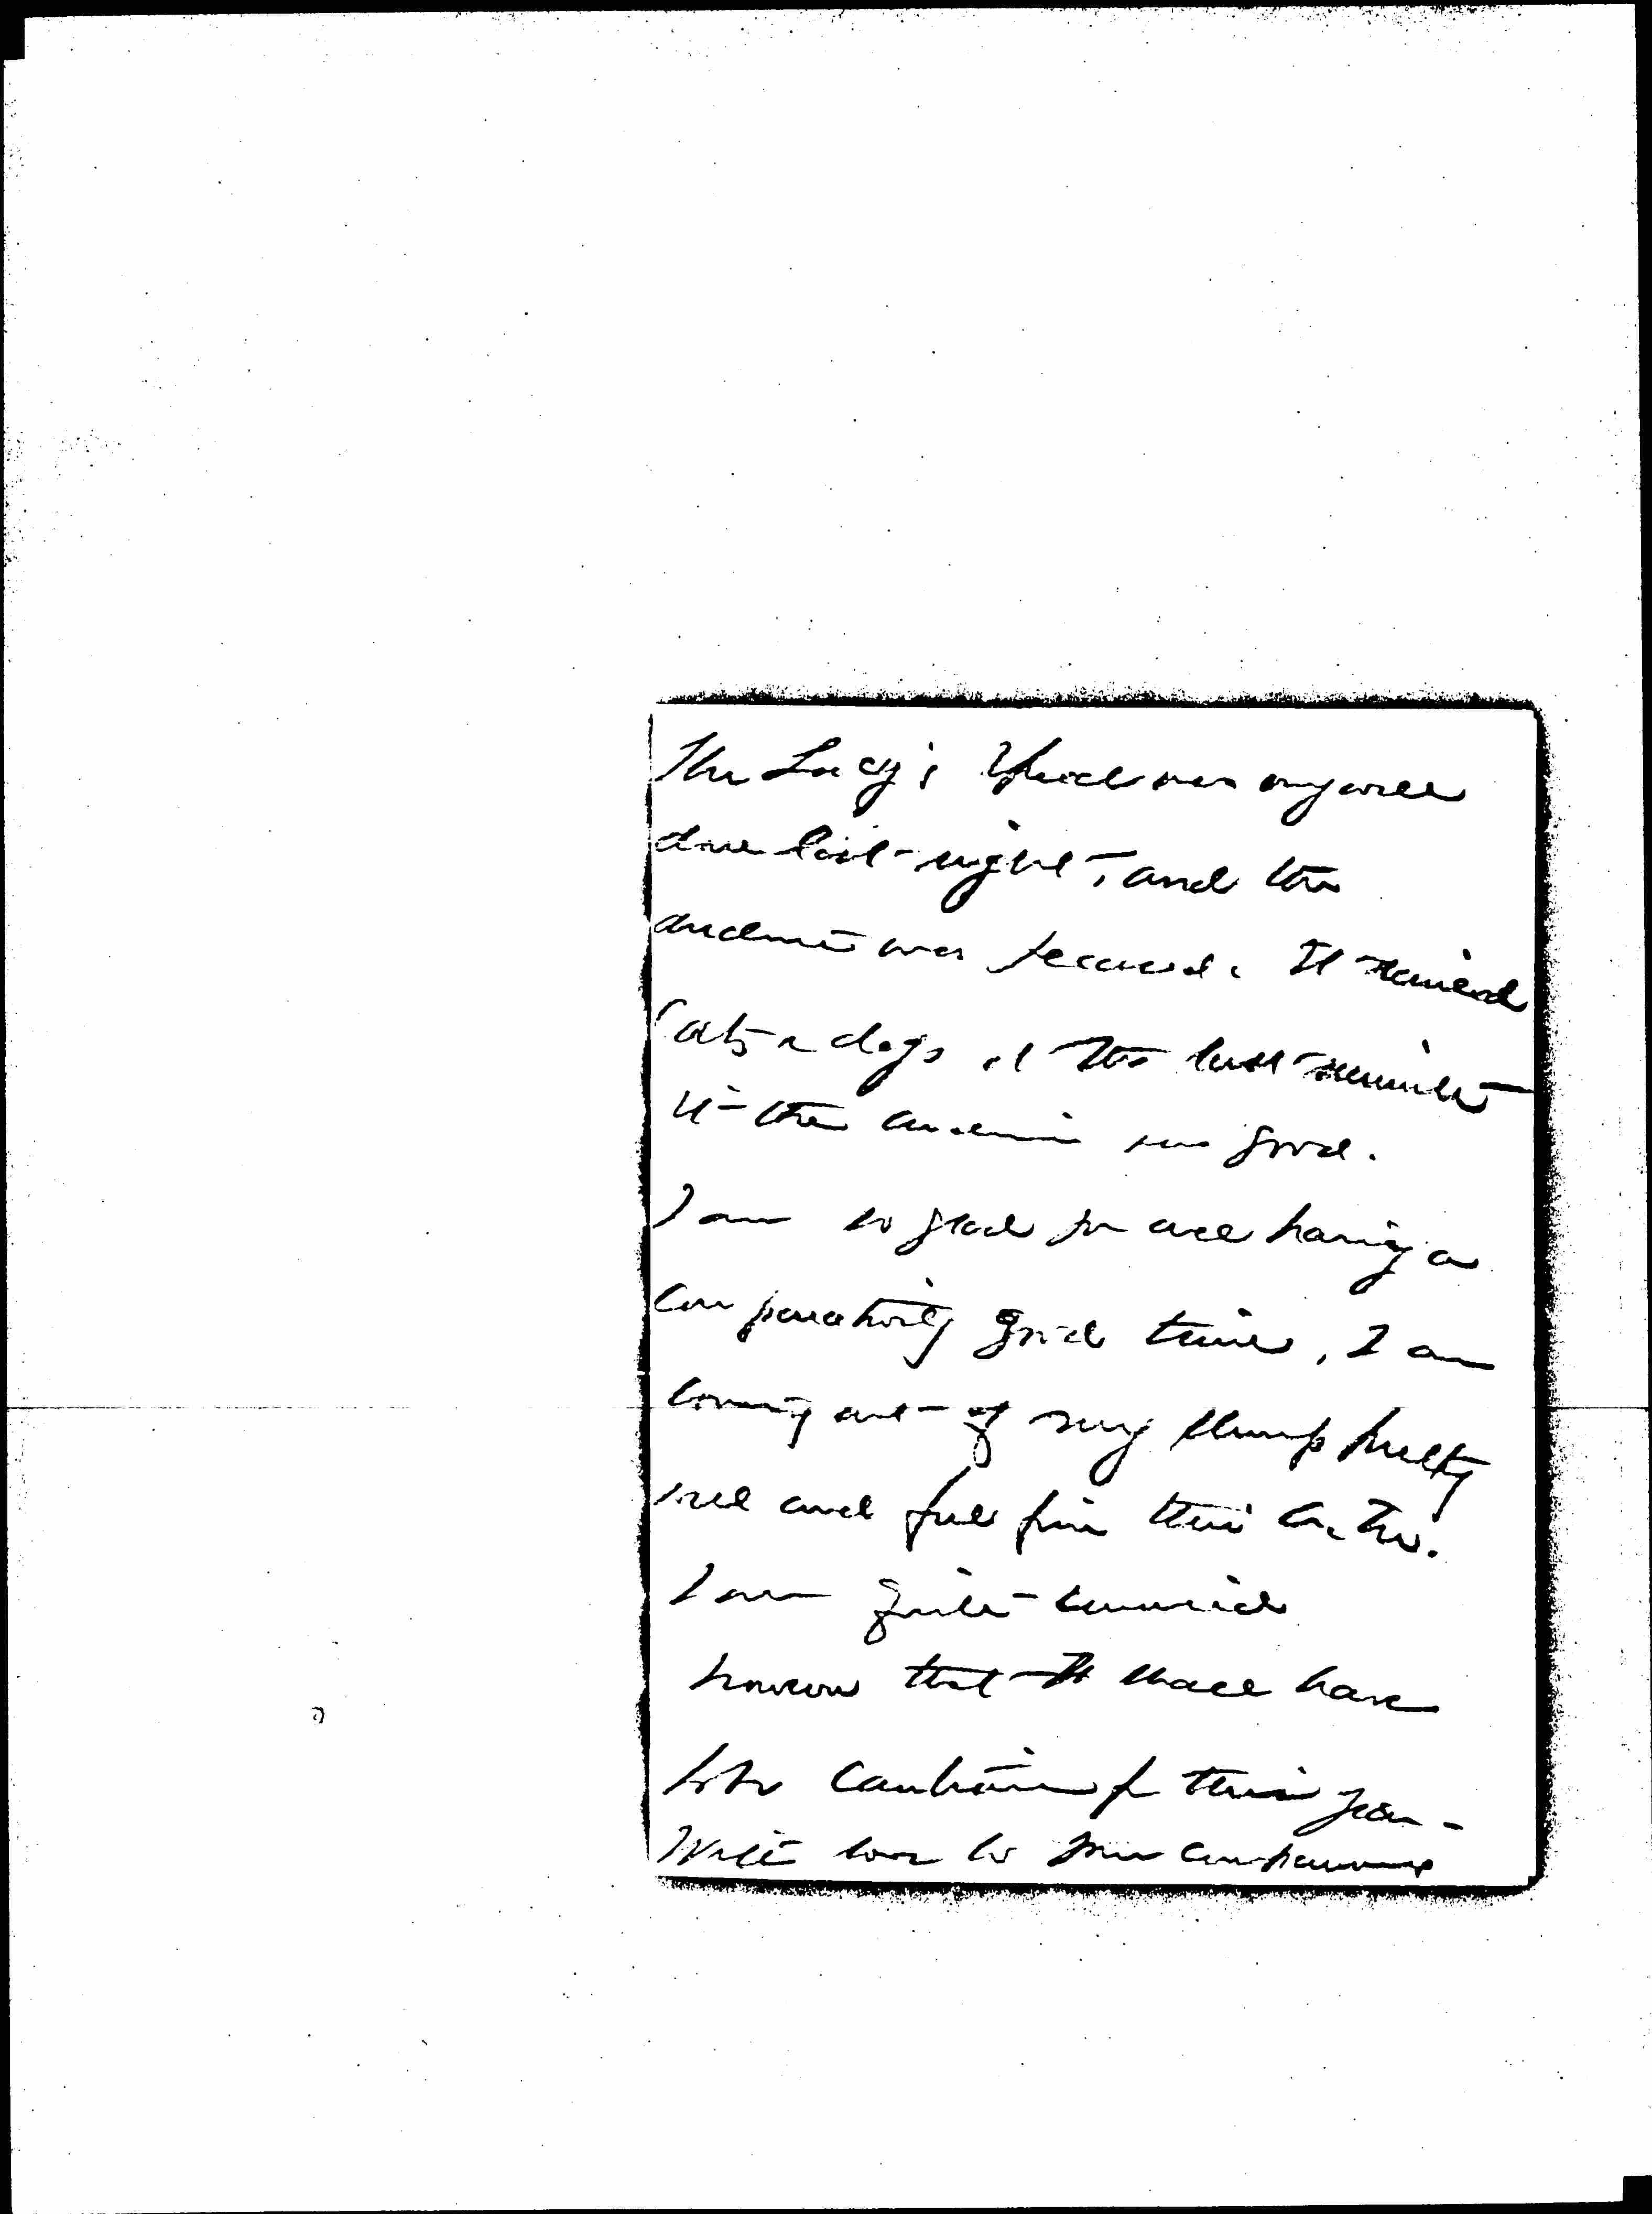 The Lucy's Speech was very well
done last night, and the
audience was pleased. It rained
Cats & dogs at the last minute
the audience was good.
I am so glad you are having a
comparatively good time, I am
coming out of my slump pretty
well and feel fine this
I am quite
however that I shall have
to be cautious for this year -
With love to your companions